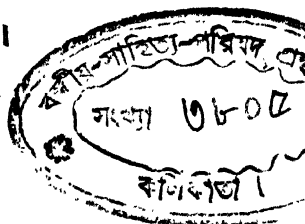 বঙ্গীয়-সাহিত্য-পরিষদ
সংখ্যা ৩৮০৫
কলিকাতা ।